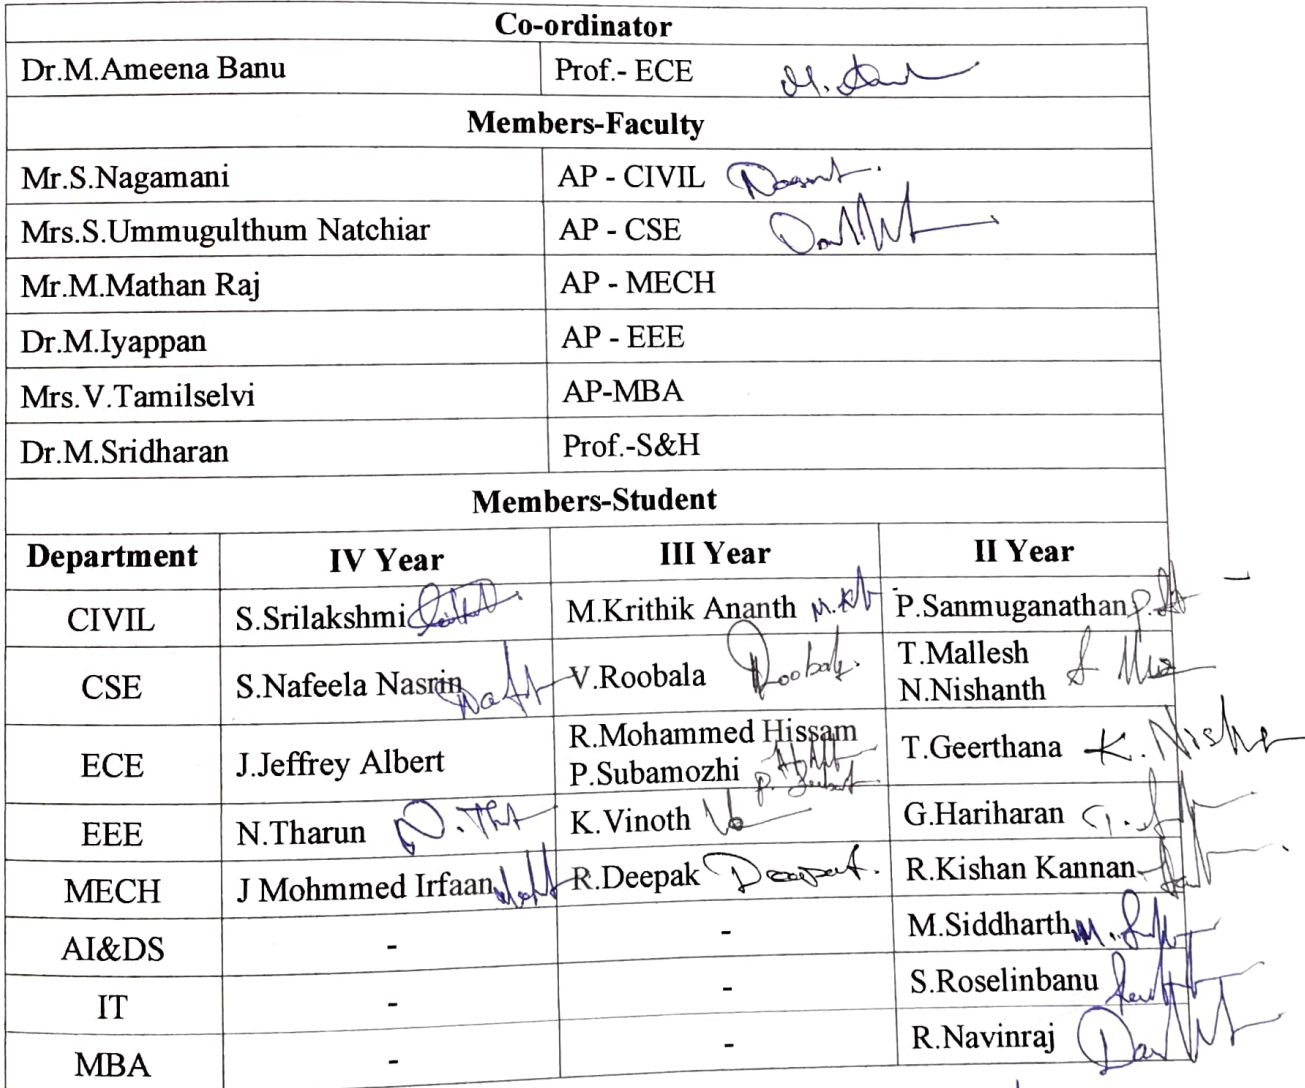 Co-ordinator
Dr.M.Ameena Banu Prof.- ECE
Members-Faculty
Mr.S.Nagamani AP - CIVIL
Mrs.S.Ummugulthum Natchiar AP - CSE
Mr.M.Mathan Raj AP - MECH
Dr.M.Iyappan AP - EEE
Mrs.V.Tamilselvi AP-MBA
Dr.M.Sridharan Prof.-S&H
Members-Student
Department IV Year III Year II Year
CIVIL S.Srilakshmi M.Krithik Ananth P.Sanmuganathan
CSE S.Nafeela Nasrin V.Roobala Roobala. T.Mallesh
N.Nishanth
ECE J.Jeffrey Albert R.Mohammed Hissam
P.Subamozhi T.Geerthana K.Nisha
EEE N.Tharun K.Vinoth G.Hariharan
MECH J Mohmmed Irfaan R.Deepak Deepak. R.Kishan Kannan
AI&DS - - M.Siddharth
IT - - S.Roselinbanu
MBA - - R.Navinraj